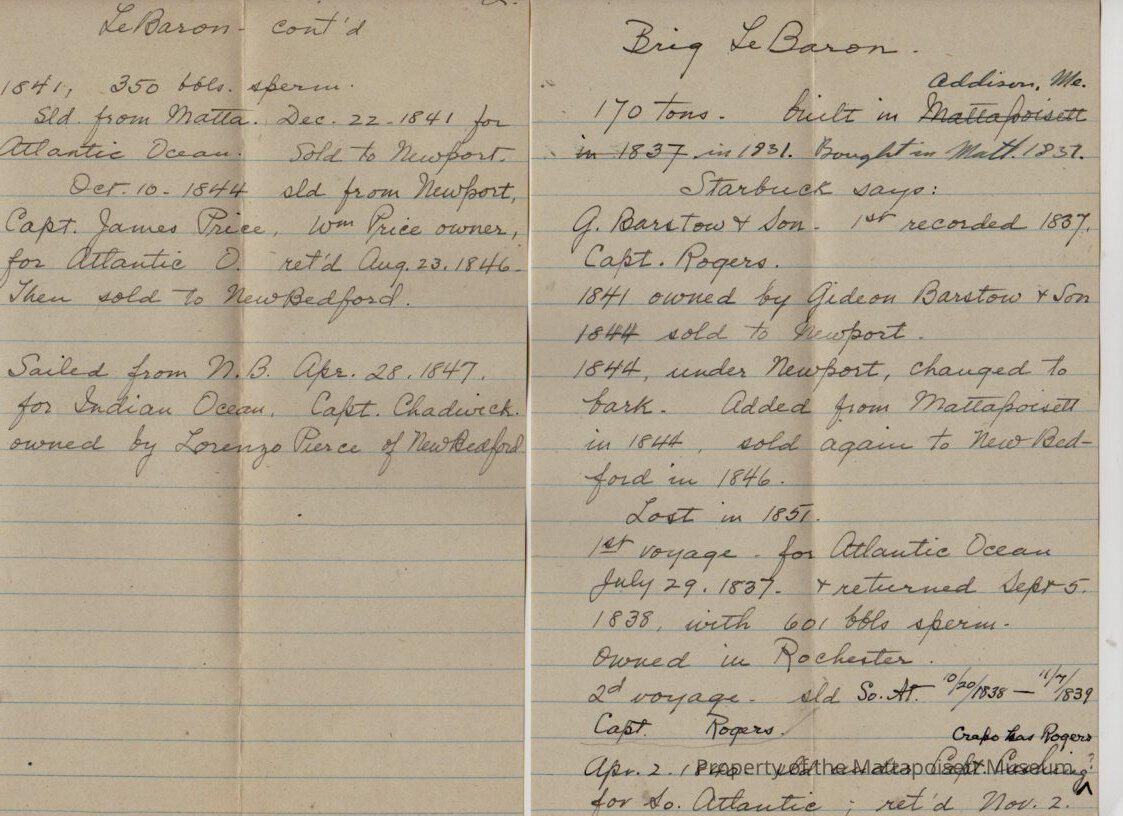 LeBaron - cont'd
1841, 350 bbls. sperm.
Sld. from Matta. Dec. 22 - 1841 for
Atlantic Ocean. Sold to Newport.
Oct. 10 - 1844 sld from Newport,
Capt. James Price, Wm Price owner,
for Atlantic O. ret'd Aug. 23. 1846.
Then sold to New Bedford.
Sailed from N.B. Apr. 28. 1847.
for Indian Ocean, Capt. Chadwick.
owned by Lorenzo Pierce of New Bedford
Brig LeBaron.
Addison, Me.
170 tons. built in Mattapoisett
in 1837. in 1831. Bought in Matt. 1837.
Starbuck says:
G. Barstow & Son. 1st recorded 1837.
Capt. Rogers.
1841 owned by Gideon Barstow & Son
1844 sold to Newport.
1844, under Newport, changed to
bark. Added from Mattapoisett
in 1844, sold again to New Bed-
ford in 1846.
Lost in 1851.
1st voyage - for Atlantic Ocean
July 29. 1837. & returned Sept 5.
1838, with 601 bbls sperm.
Owned in Rochester.
2d voyage. sld So. At. 10/20/1838 — 11/7/1839
Capt. Rogers.
Crapo has Rogers
Apr. 2. Capt.
Property of the Mattapoisett Museum
for So. Atlantic; ret'd Nov. 2.